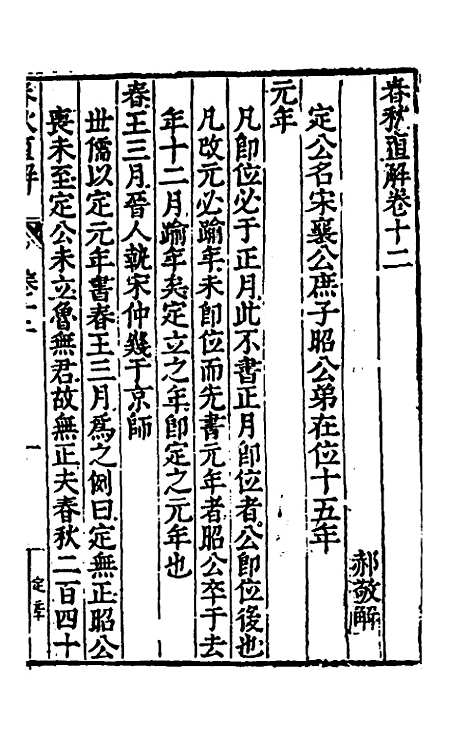 春秋直解卷十二
郝敬解
定公名宋襄公庶子昭公弟在位十五年
元年
凡卽位必于正月此不書正月卽位者公卽位後也
凡改元必踰年未卽位而先書元年者昭公卒于去
年十二月踰年矣定立之年卽定之元年也
春王三月晉人執宋仲幾于京師
世儒以定元年書春王三月爲之例曰定無正昭公
喪未至定公未立魯無君故無正夫春秋二百四十
春秋直解
卷十二
一
定